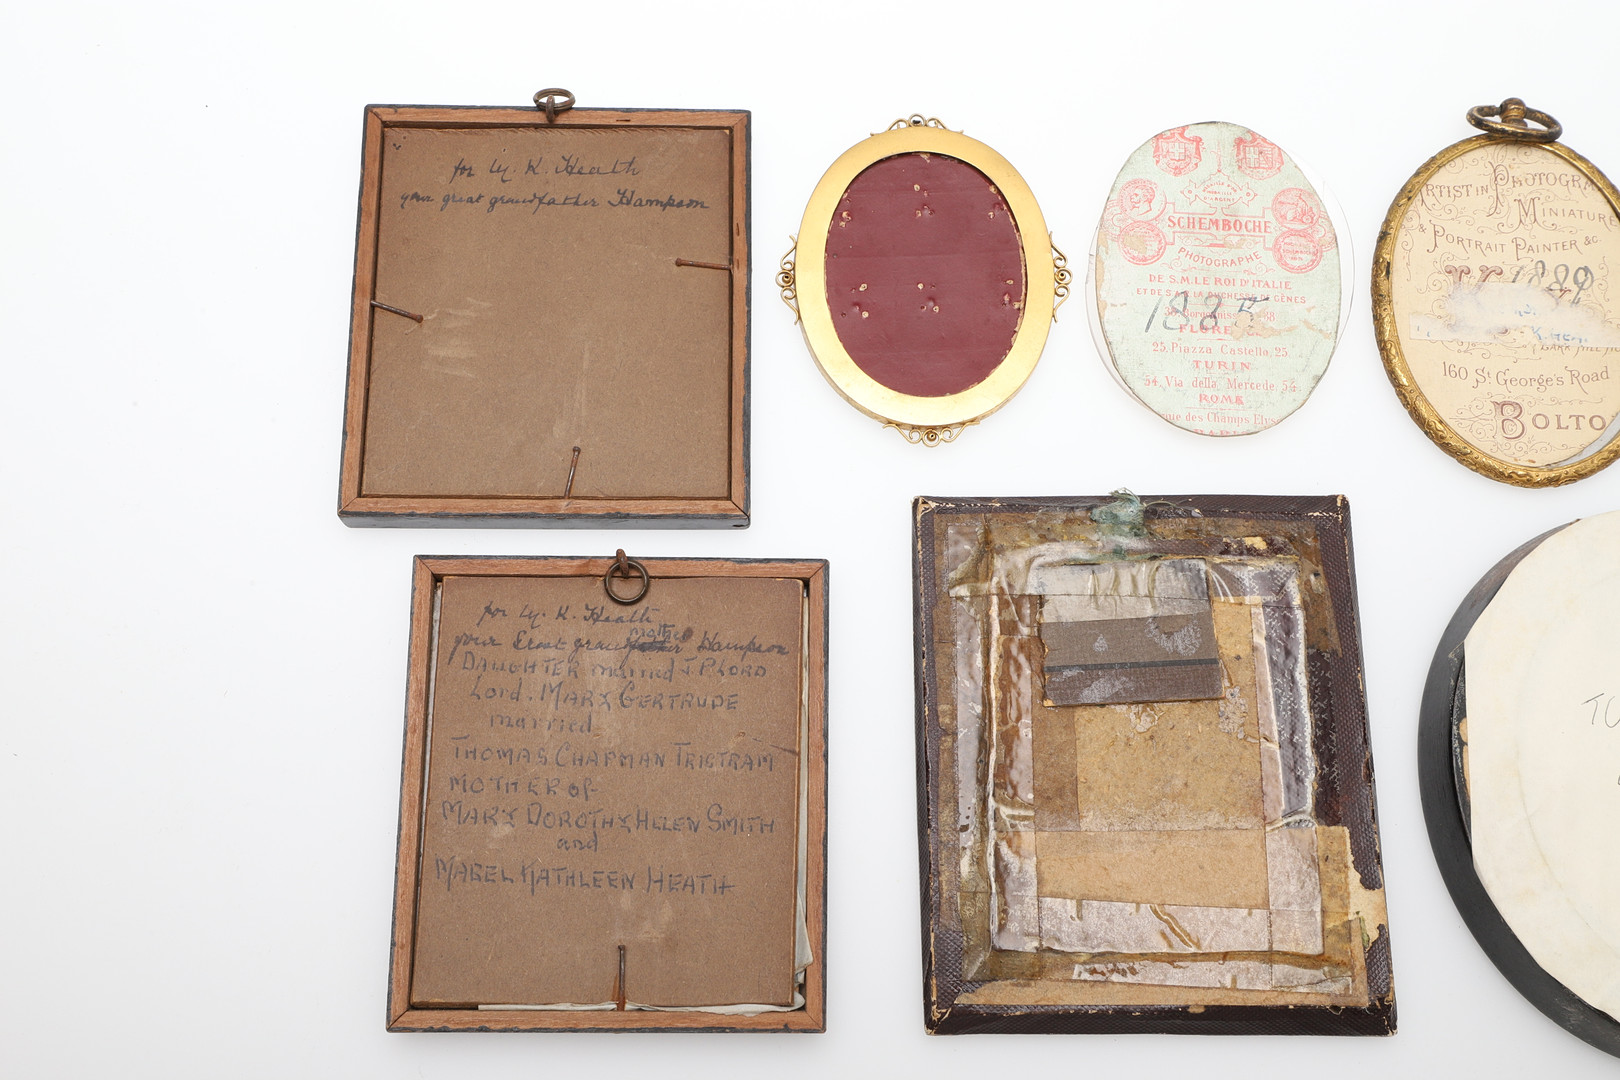 for M. K. Heath
your great grandfather Hampson
for M. K. Heath
mother
your Great grandfather Hampson
DAUGHTER married J. P. LORD
Lord. MARY GERTRUDE
married
THOMAS CHAPMAN TRISTRAM
MOTHER OF
MARY DOROTHY HELEN SMITH
and
MABEL KATHLEEN HEATH
SCHEMBOCHE
PHOTOGRAPHE
DE S.M. LE ROI D'ITALIE
ET DE S.A.R. LA DUCHESSE DE GÊNES
1885
FLORE
25, Piazza Castello, 25.
TURIN
54, Via della Mercede, 54
ROME
que des Champs Elys
RTIST IN PHOTOGRA
MINIATURE
& PORTRAIT PAINTER &C.
1889
160 St George's Road
BOLTO